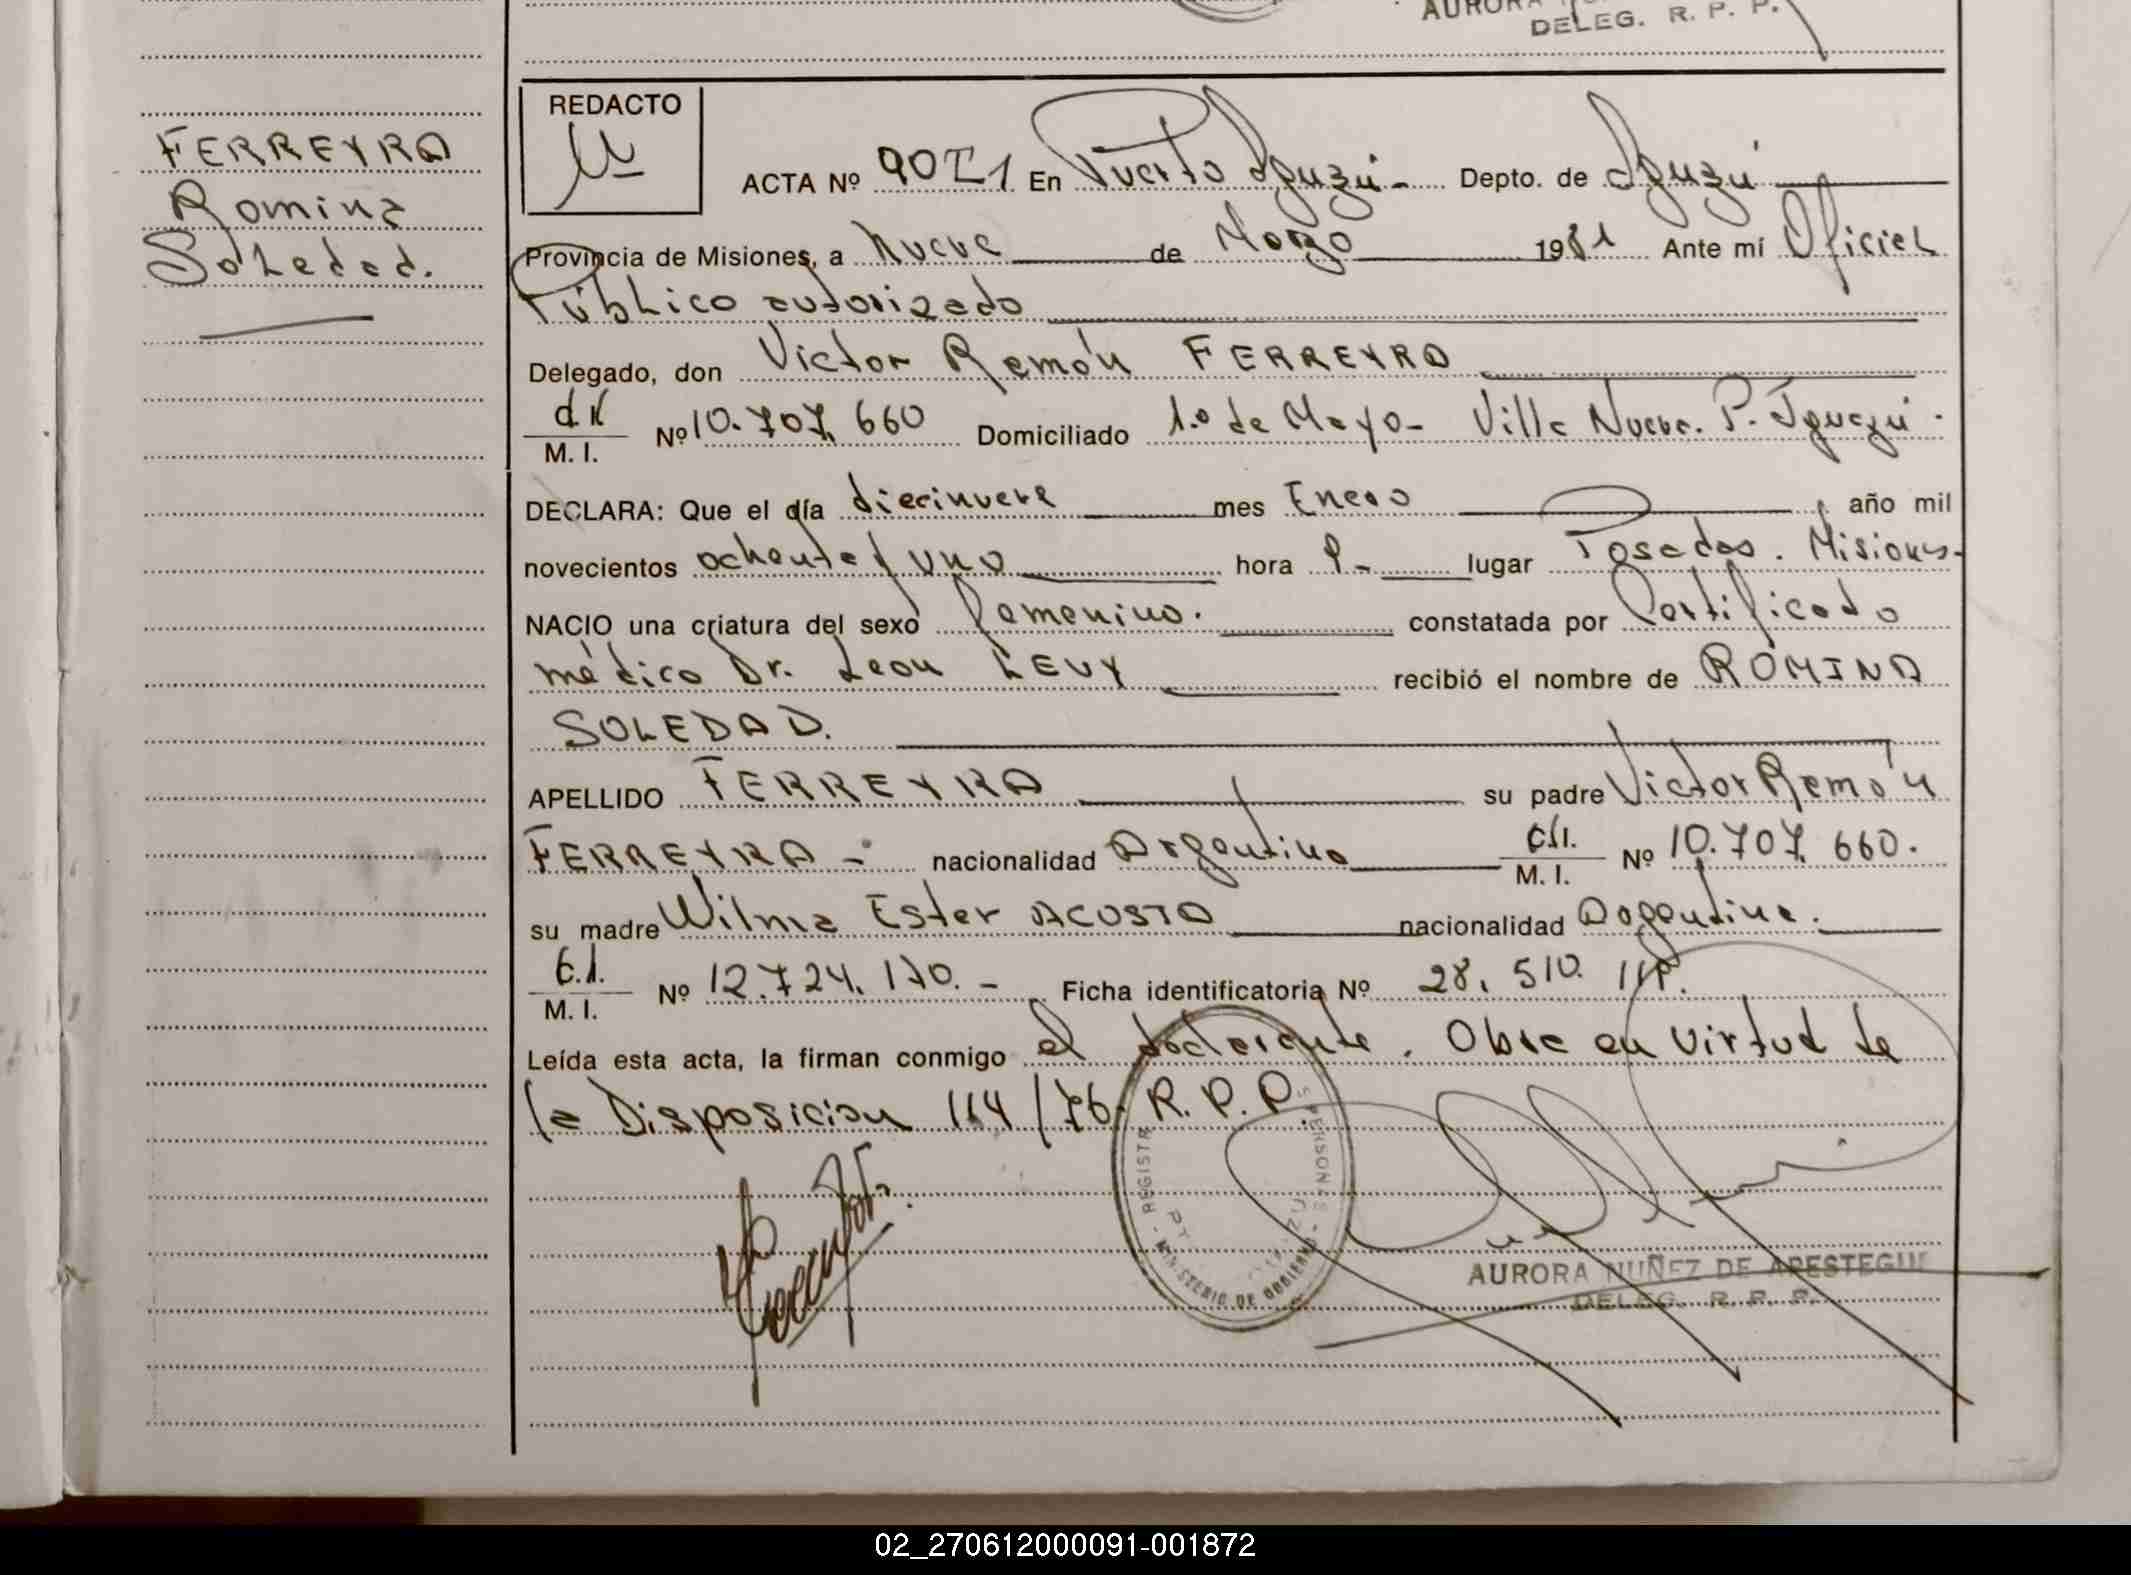 AURORA
DELEG. R. P. P.
FERREYRA
Romina
Soledad.
REDACTO
ACTA Nº 90 I1 En Puerto Iguzú - Depto. de Iguzú
Provincia de Misiones, a Nueve de Marzo 1981 Ante mí Oficial
Público autorizado
Delegado, don Victor Ramón FERREYRA
M. I. Nº 10.707.660 Domiciliado 1.º de Mayo - Villa Nueva. P. Iguazú.
DECLARA: Que el día diecinueve mes Enero año mil
novecientos ochenta y uno hora lugar Posadas. Misiones-
NACIO una criatura del sexo femenino. constatada por Certificado
médico Dr. Leon LEVY recibió el nombre de ROMINA
SOLEDAD.
APELLIDO FERREYRA su padre Victor Ramón
FERREYRA - nacionalidad Argentino M. I. Nº 10.707.660.
su madre Wilma Ester ACOSTA nacionalidad Argentina.
M. I. Nº 12.724.170. - Ficha identificatoria Nº 28. 510.
Leída esta acta, la firman conmigo el declarante. Obra en virtud de
la Disposicion 114/76. R. P. P.
REGISTR
PERSONAS
MINISTERIO DE GOBIERNO
AURORA NUÑEZ DE APESTEGUI
DELEG. R. P. P.
02_270612000091-001872